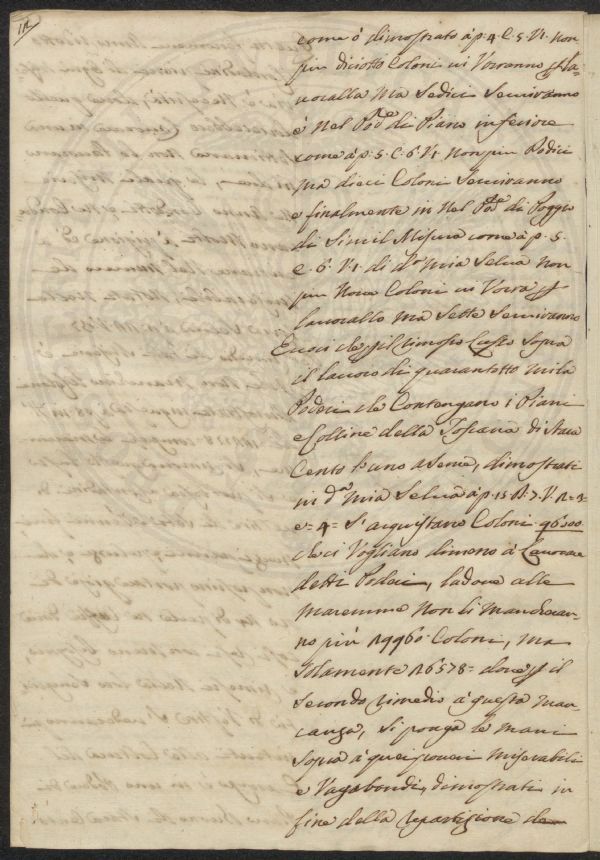 12
come è dimostrato à p. 4. C. 5. V. 1. non
più diciotto Coloni vi Vorranno p la-
vorallo Ma Sedici Serviranno
è Nel Pod.e di Piano inferiore
come à p. 5. C. 6. V. 1. Non più Dodici
ma dieci Coloni Serviranno
e finalmente in Nel Pod.e di Poggio
di Simil Misura come à p. 5.
C. 6. V. 1. di d.a mia Selva non
più Nove Coloni vi Vorrà p
lavorallo ma Sette Serviranno
Eccoci che p il rimosso Lusso Sopra
il lavoro di quarantotto mila
Poderi che Contengano i Piani
e Colline della Toscana di staia
Cento l'uno a seme, dimostrati
in d.a mia Selva à p. 15. R. 7. V. 2 = 3 =
e = 4 = S'acquistano Coloni 96000
che ci Vogliano dimeno à Lavorare
detti Poderi, ladove alle
maremme non li mancheran-
no più 29960. Coloni, ma
Solamente 26578 = dove p il
Secondo rimedio à questa man-
canza, si ponga le mani
sopra à quei poveri miserabili
e Vagabondi, dimostrati in
fine della repartizione de